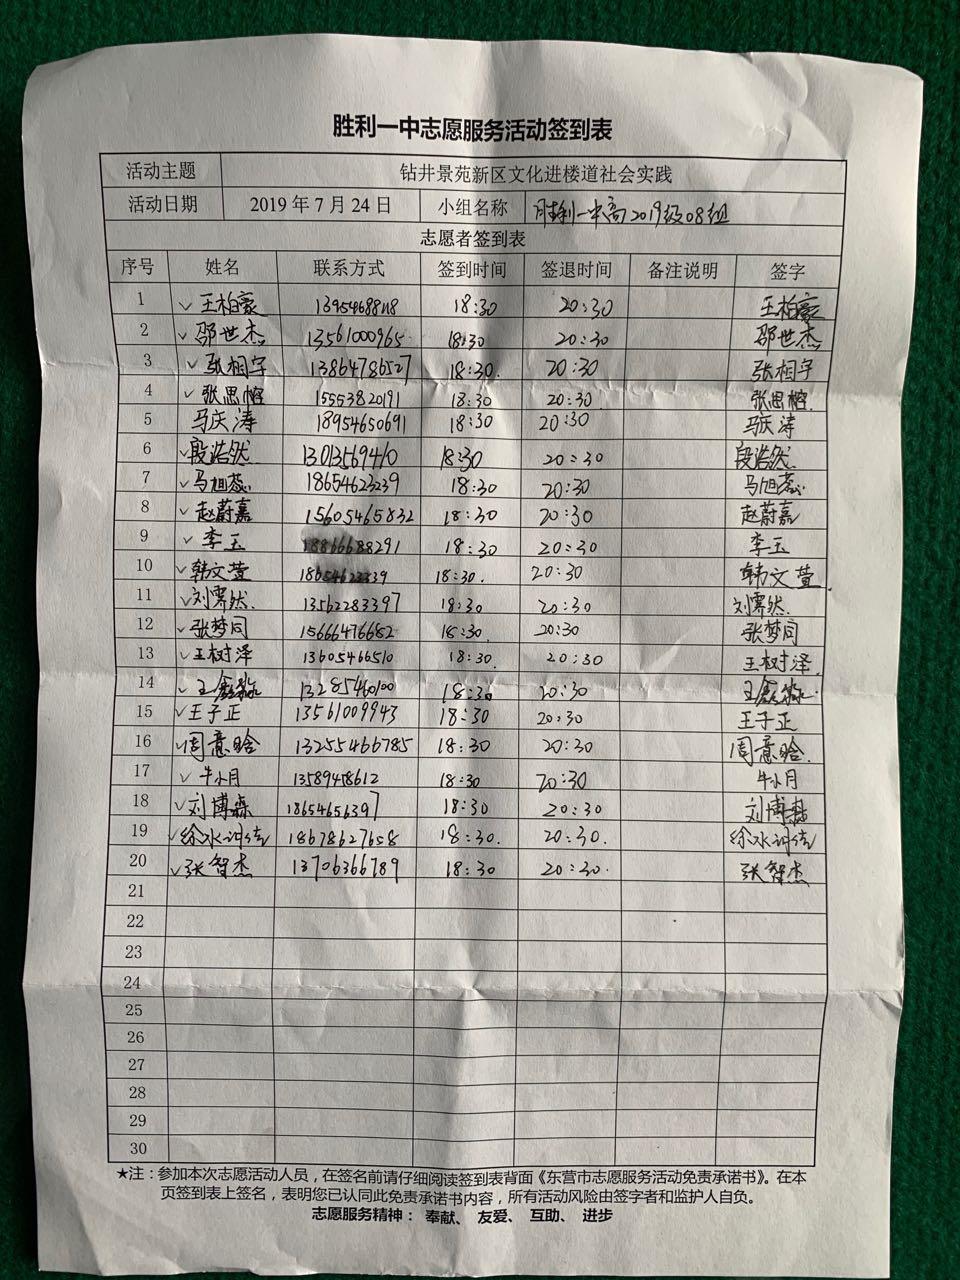 胜利一中志愿服务活动签到表
活动主题 钻井景苑新区文化进楼道社会实践
活动日期 2019年7月24日 小组名称 胜利一中高2019级08组
志愿者签到表
序号 姓名 联系方式 签到时间 签退时间 备注说明 签字
1 ✓王柏豪 13954688118 18:30 20:30 王柏豪
2 ✓邵世杰 13561000965 18:30 20:30 邵世杰
3 ✓张相宇 13864786527 18:30. 20:30 张相宇
4 ✓张思榕 15553820191 18:30 20:30 张思榕.
5 马庆涛 18954650691 18:30 20:30 马庆涛
6 ✓段浩然 13013569410 18:30 20:30 段浩然
7 ✓马旭蕊 18654623239 18:30 20:30 马旭蕊
8 ✓赵蔚嘉 15605465832 18:30 20:30 赵蔚嘉
9 ✓李玉 18866688291 18:30 20:30 李玉
10 ✓韩文萱 18:30. 20:30 韩文萱
11 ✓刘霁然. 13562283397 18:30 20:30 刘霁然.
12 ✓张梦同 15666476652 18:30. 20:30 张梦同
13 ✓王树泽 13605466510 18:30. 20:30 王树泽.
14 ✓王鑫淼 13285460100 18:30 20:30 王鑫淼.
15 ✓王子正 13561009943 18:30 20:30 王子正
16 ✓周意晗 13255466785 18:30 20:30 周意晗.
17 ✓牛小月 13589458612 18:30 20:30 牛小月
18 ✓刘博森 18654656397 18:30 20:30 刘博森
19 ✓徐冰 18678627658 18:30. 20:30. 徐冰
20 ✓张智杰 13706366789 18:30 20:30. 张智杰
21
22
23
24
25
26
27
28
29
30
★注：参加本次志愿活动人员，在签名前请仔细阅读签到表背面《东营市志愿服务活动免责承诺书》。在本
页签到表上签名，表明您已认同此免责承诺书内容，所有活动风险由签字者和监护人自负。
志愿服务精神： 奉献、 友爱、 互助、 进步